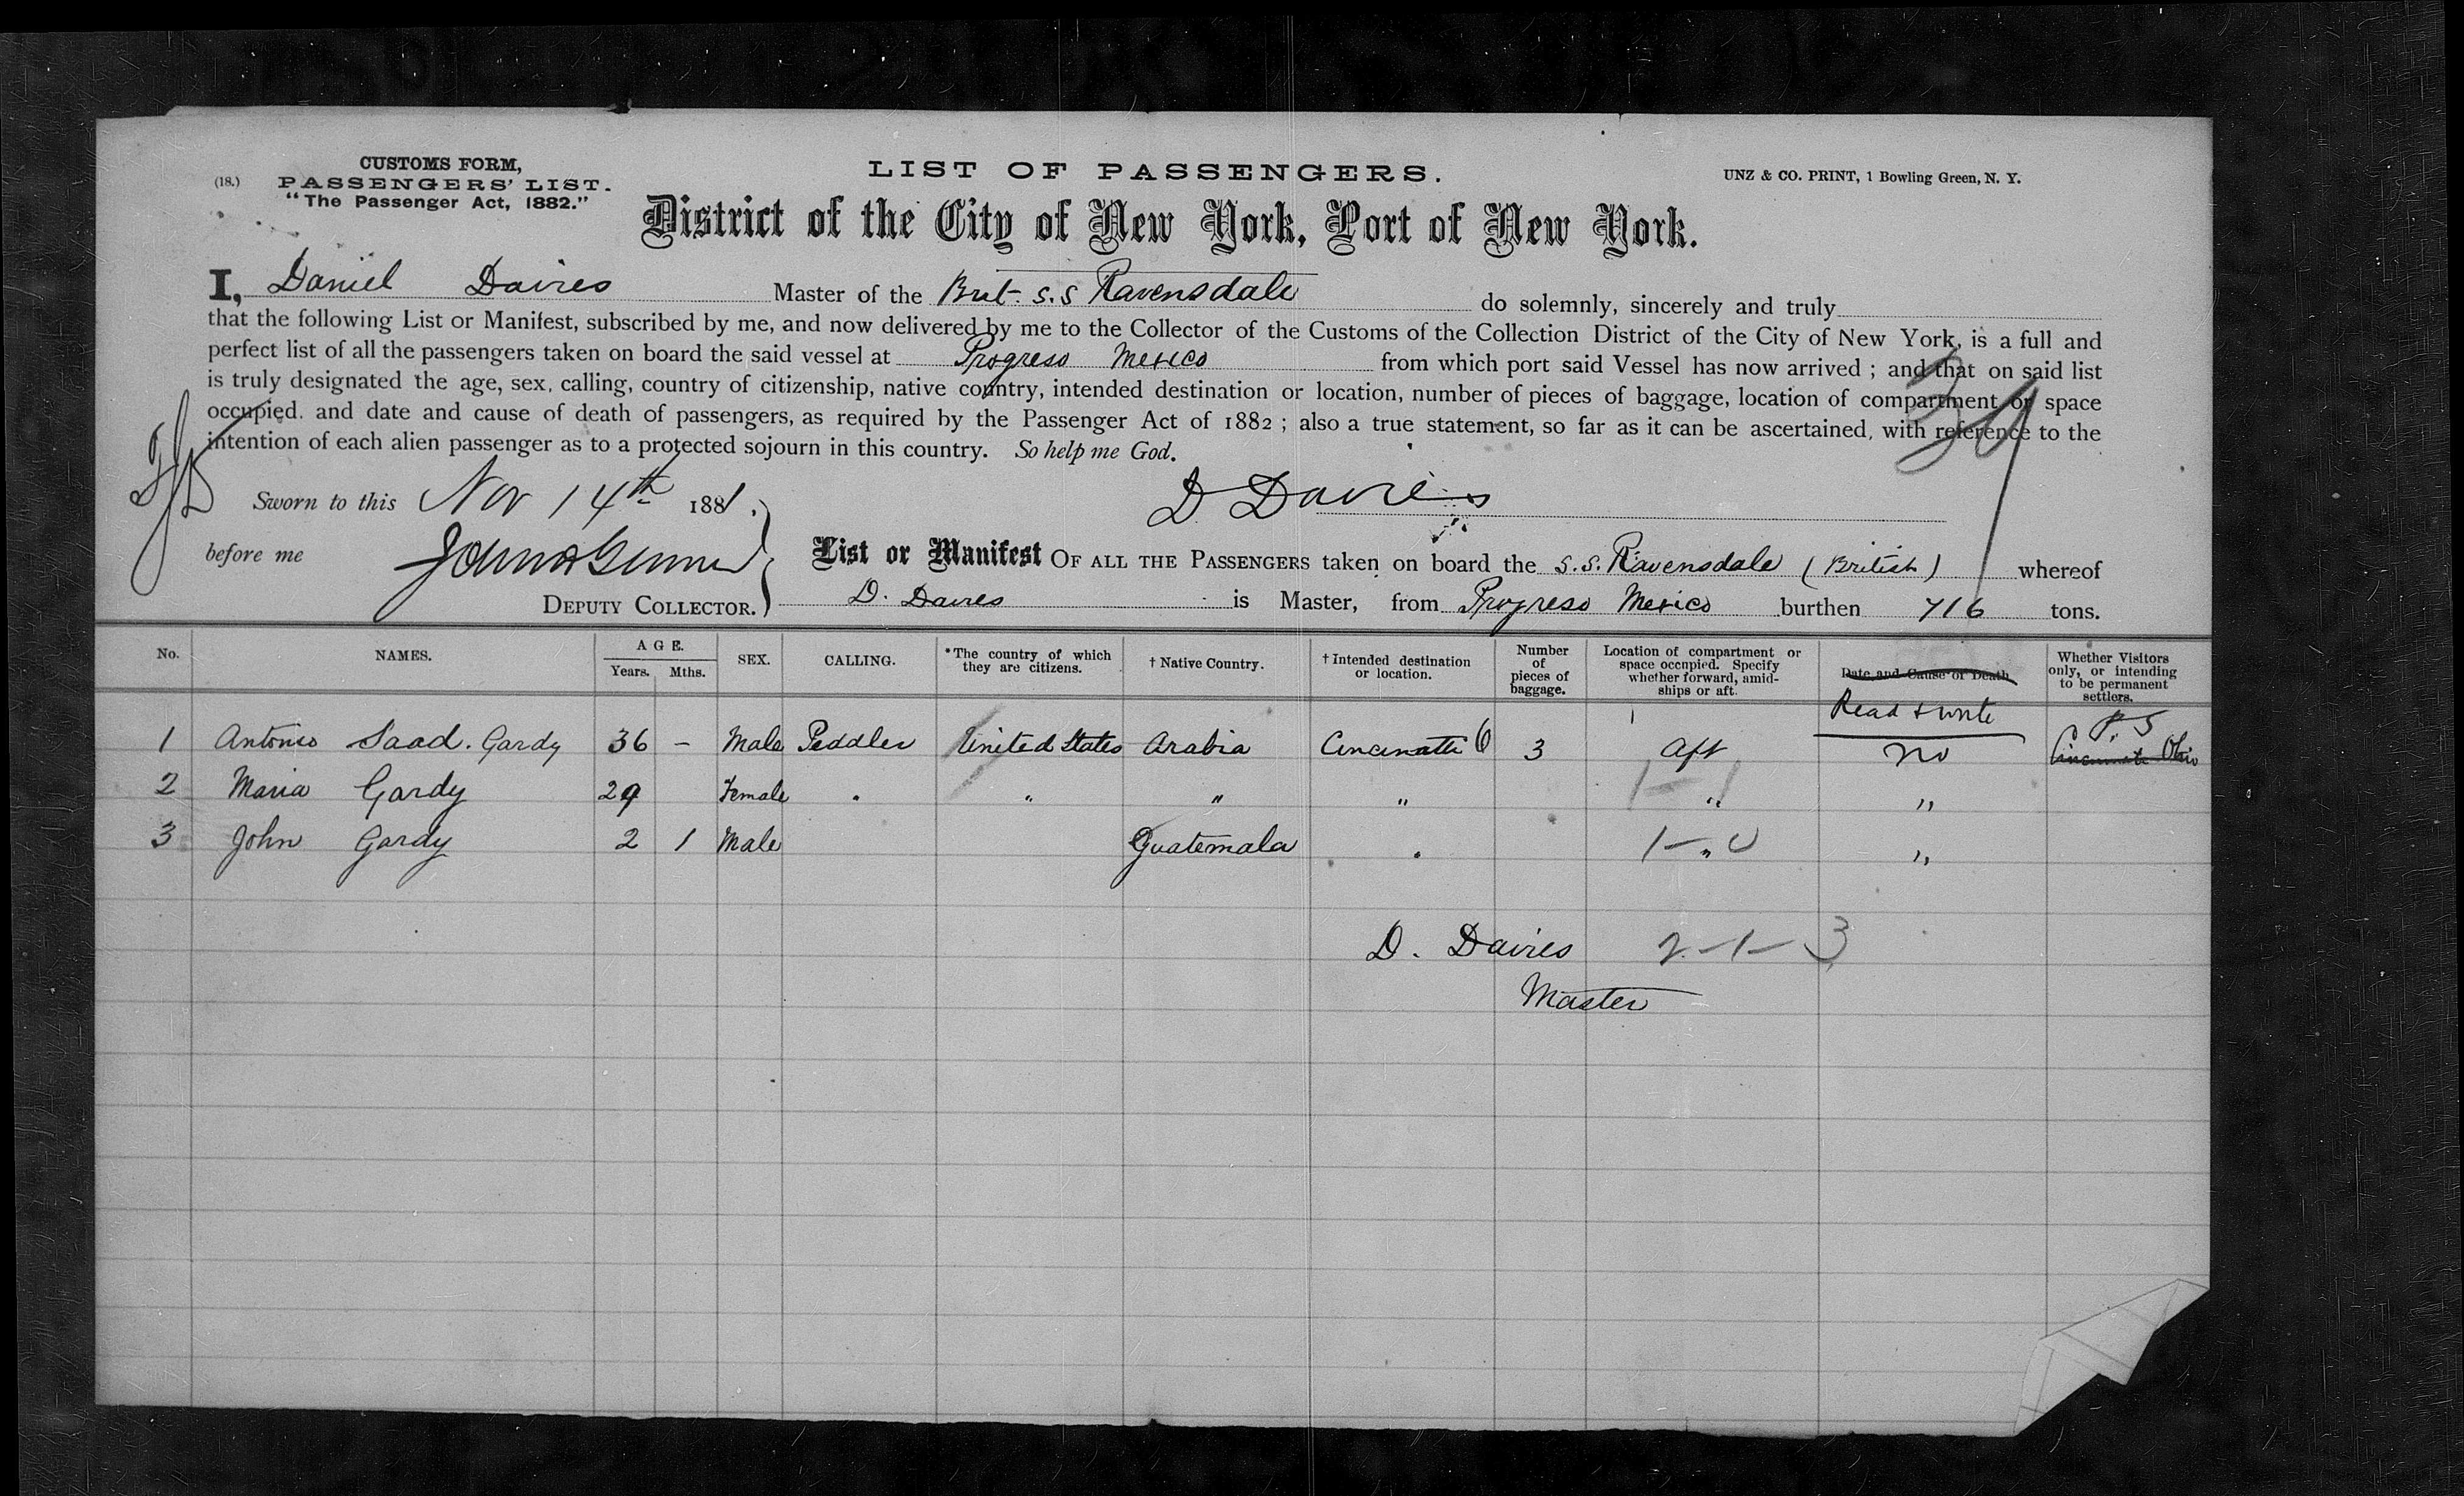 CUSTOMS FORM,
(18.) PASSENGERS' LIST.
"The Passenger Act, 1882."
LIST OF PASSENGERS.
UNZ & CO. PRINT, 1 Bowling Green, N. Y.
District of the City of New York, Port of New York.
I, Daniel Davies Master of the Brit. S.S Ravensdale do solemnly, sincerely and truly
that the following List or Manifest, subscribed by me, and now delivered by me to the Collector of the Customs of the Collection District of the City of New York, is a full and
perfect list of all the passengers taken on board the said vessel at Progreso Mexico from which port said Vessel has now arrived ; and that on said list
is truly designated the age, sex, calling, country of citizenship, native country, intended destination or location, number of pieces of baggage, location of compartment or space
occupied. and date and cause of death of passengers, as required by the Passenger Act of 1882 ; also a true statement, so far as it can be ascertained, with reference to the
intention of each alien passenger as to a protected sojourn in this country. So help me God.
Sworn to this Nov 14th 1881.
D Davies
before me
DEPUTY COLLECTOR.
List or Manifest OF ALL THE PASSENGERS taken on board the S.S. Ravensdale (British) whereof
D. Davies is Master, from Progreso Mexico burthen 716 tons.
No. NAMES. AGE. Years. Mths. SEX. CALLING. *The country of which they are citizens. † Native Country. † Intended destination or location. Number of pieces of baggage. Location of compartment or space occupied. Specify whether forward, amidships or aft. Date and Cause of Death Whether Visitors only, or intending to be permanent settlers.
Read & write
P.S
1 Antonio Saad. Gardy 36 – Male Peddler United States Arabia Cincinatti O 3 Aft no Cincinnati Ohio
2 Maria Gardy 29 Female " " " " "
1 – 1
3 John Gardy 2 1 Male Guatemala " " "
1 – 0
D. Davies 2 – 1 – 3
Master